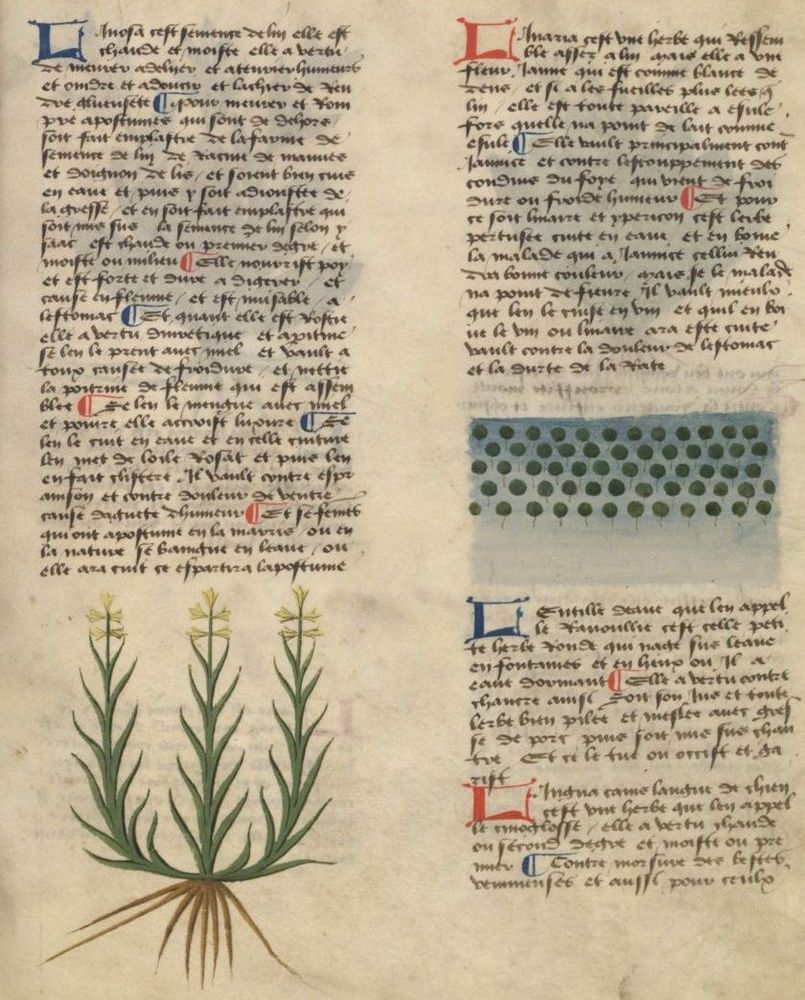 Linosa cest semence de lin elle est
chaude et moiste elle a vertu
de meurer adelier et atenvier humeurs
et oindre et adoucir et lachier de ren
dre gluensete ¶ Pour meurer et rom
pre apostumes qui sont de dehors
soit fait emplastre de la farine de
semence de lin de racine de mauves
et doignon de lis et soient bien cuis
en eaue et puis y soit adioustee de
la gresse et en soit fait emplastre qui
soit mis sus la semence de lin selon y
saac est chaude ou premier degre et
moiste ou milieu ¶ Elle nourrist poy
et est forte et dure a digerer et
cause en fleume et est nuisable a
lestomac ¶ Et quant elle est rostie
elle a vertu diuretique et apitime
se len le prent auec miel et vault a
toux causee de froidure et nettie
la poitrine de fleume qui est assem
blee ¶ Se len le mengue auec miel
et poiure elle accroist luxure ¶ Se
len le cuit en eaue et en celle cuiture
len met de loile rosat et puis len
en fait clistere Il vault contre espr
ainson et contre douleur de ventre
cause daguete dhumeur ¶ Et se femes
qui ont apostume en la marris ou en
la nature se baingne en leaue ou
elle ara cuit ce espartira lapostume
Linaria cest une herbe qui ressem
ble assez a lin mais elle a une
fleur Iaune qui est comme blance de
dens et si a les fueilles plus lees q
lin elle est toute pareille a esule
fors quelle na point de lait comme
esule ¶ Elle vault principalment cont
Iaunice et contre lestouppement des
conduis du foye qui vient de froi
dure ou froide humeur ¶ Et pour
ce soit linaire et ypericon cest lerbe
pertusee cuite en eaue et en boiue
la malade qui a Iaunice cellui ren
dra bonne couleur mais se le malade
na point de fieure Il vault mieulx
que len le cuise en vin et quil en boi
ue le vin ou linaire ara este cuite
vault contre la douleur de lestomac
et la durte de la rate
Lentille deaue que len appel
le Ranoullie cest celle peti
te herbe ronde qui nage sus leaue
en fontaines et en lieux ou Il a
eaue dormant ¶ Elle a vertu contre
chancre ainsi Soit son Ius et toute
lerbe bien pilee et meslee auec gres
se de porc puis soit mis sus chan
cre Et ce le tue ou occist et ga
rist
Lingua canis langue de chien
cest une herbe que len appel
le cinoglosse elle a vertu chaude
ou second degre et moiste ou pre
mier ¶ Contre morsure des bestes
venimeuses et aussi pour ceulx